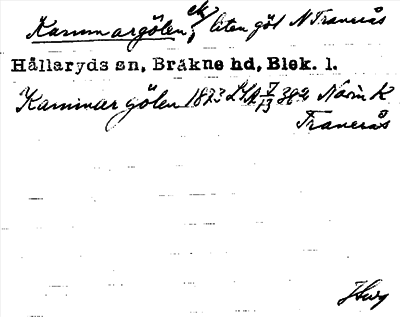 Kammargölen, liten göl N Tranerås
Hällaryds sn, Bräkne hd, Blek. l.
Kammargölen 1873 LSA 382 Norin K
Tranerås